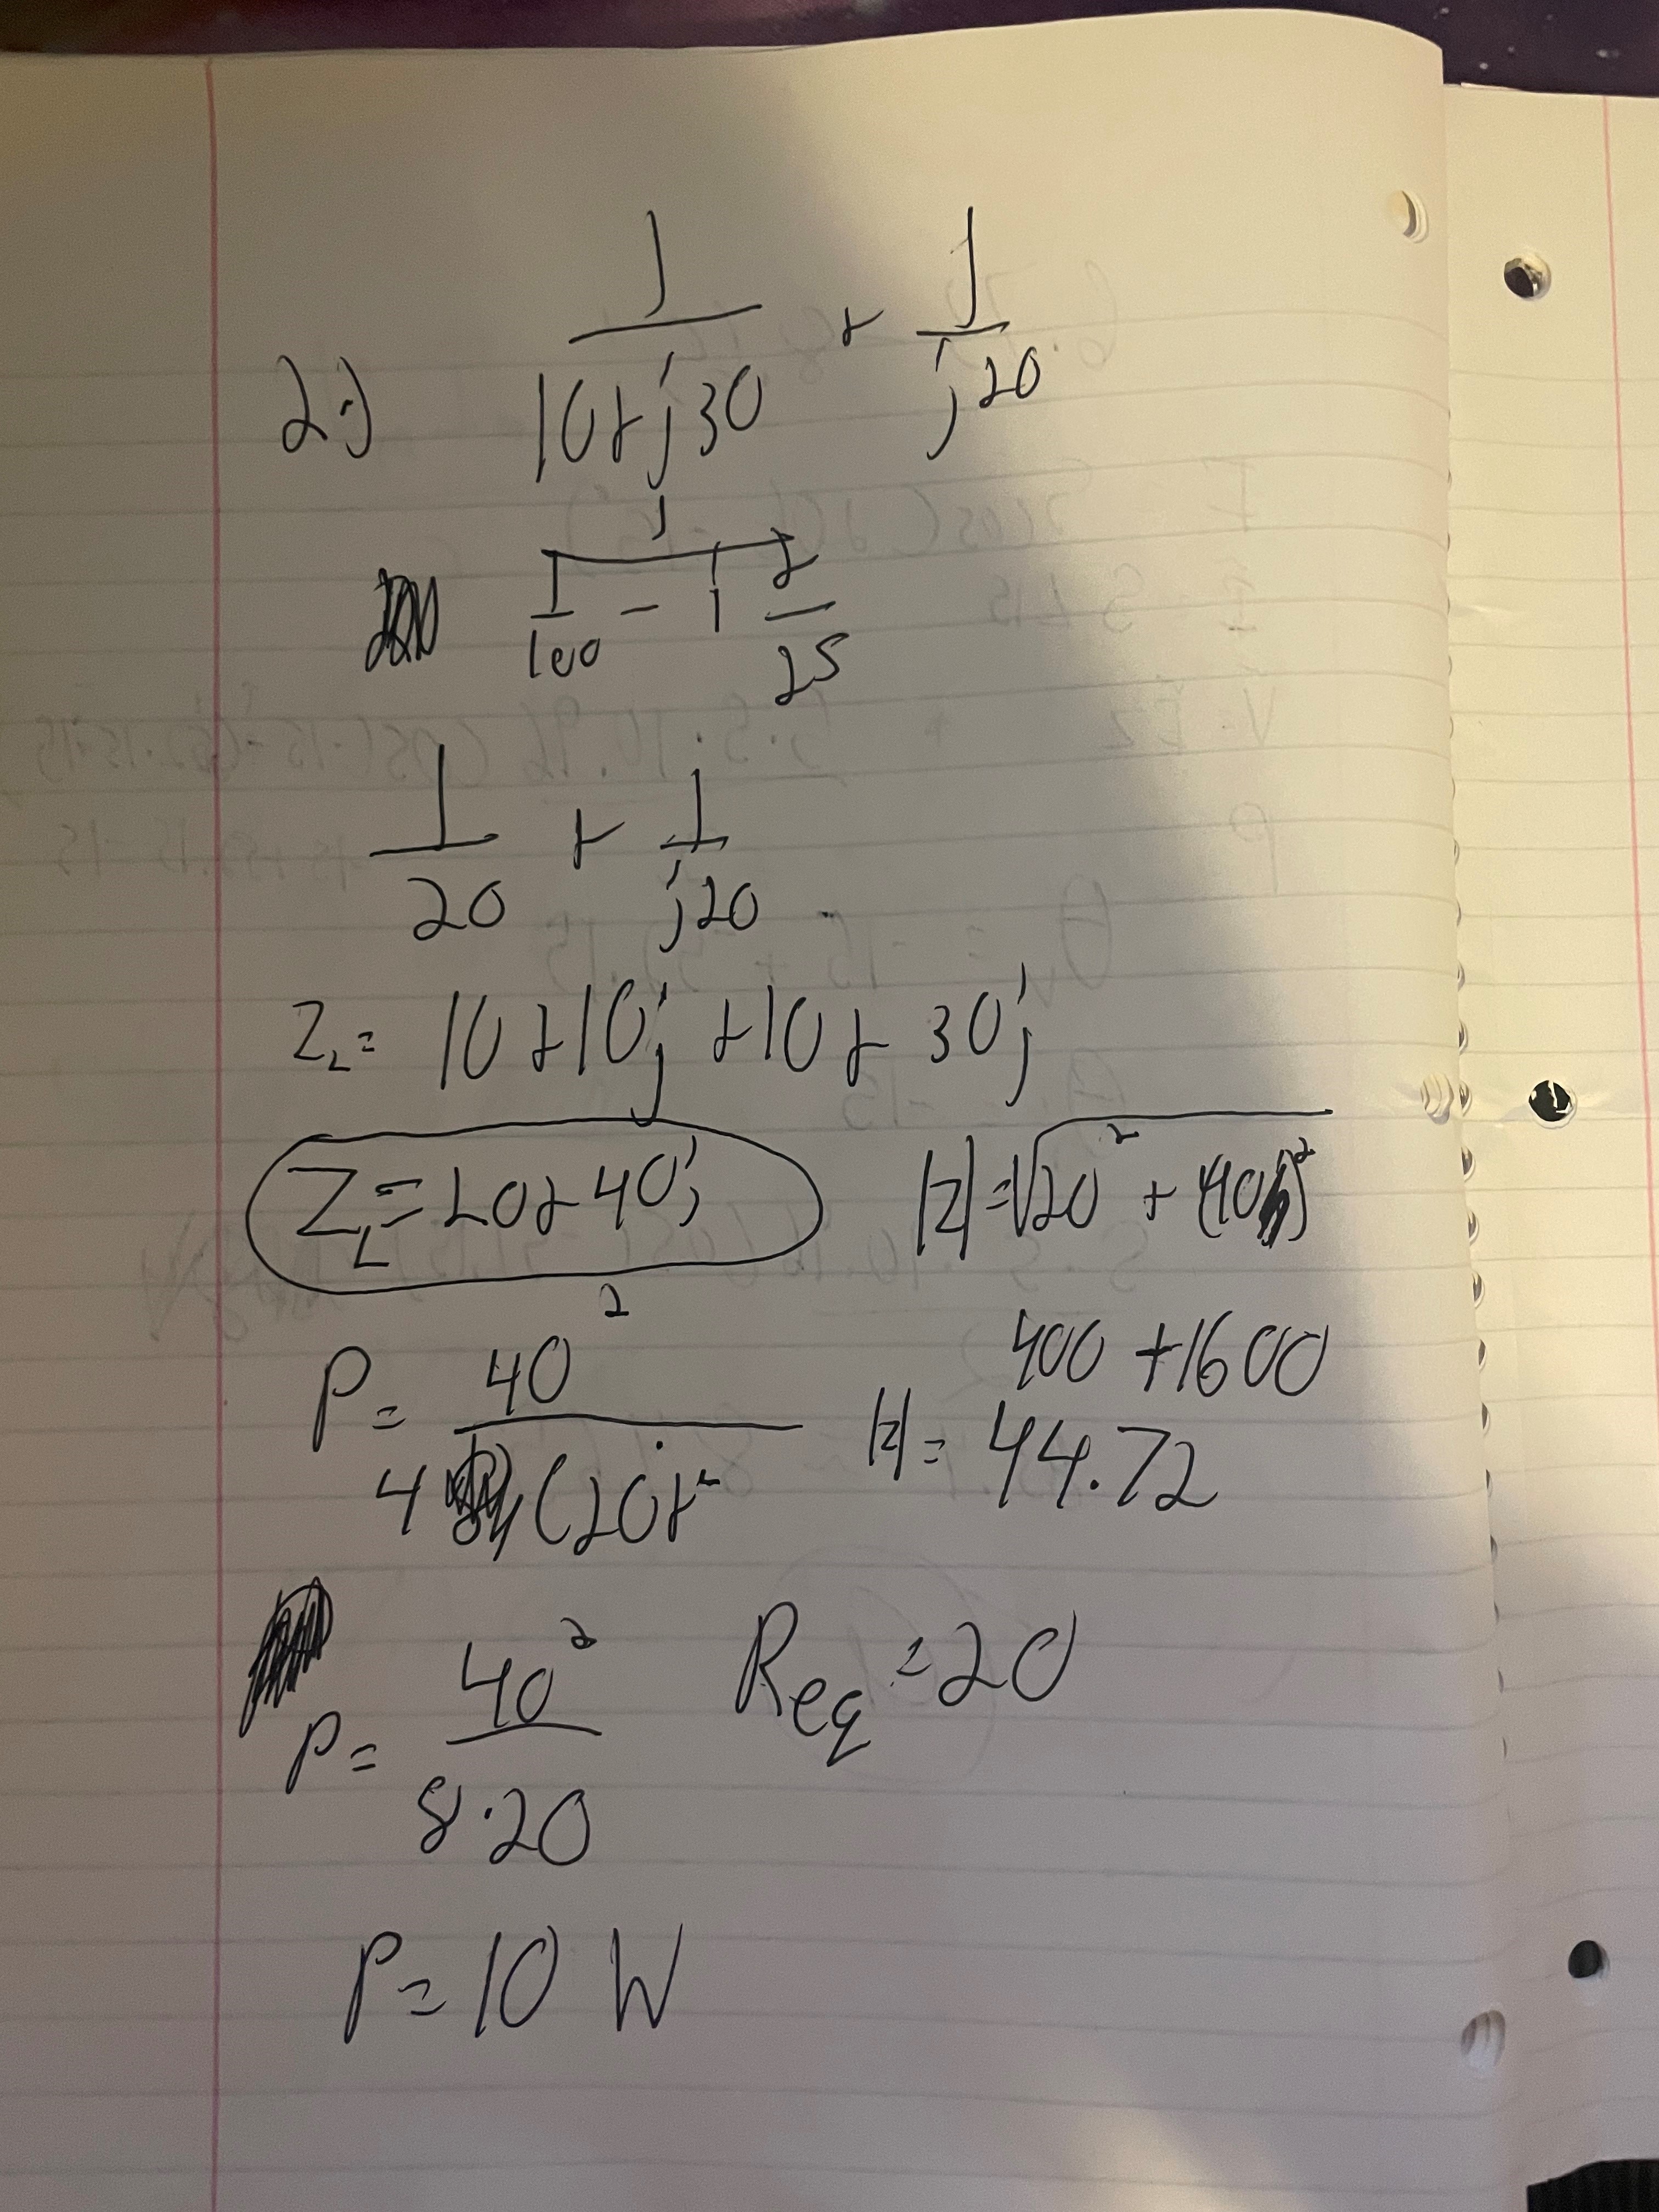 2.) 1/(10+j30) + 1/(j20)
1/(1/100 - i 2/25)
1/20 + 1/(j20)
Z_L = 10+10j +10+ 30j
Z_L = 20+40j |Z| = √(20² + (40)²)
400 +1600
P = 40²/(4(20)+² |Z| = 44.72
P = 40²/(8·20) Req = 20
P = 10 W